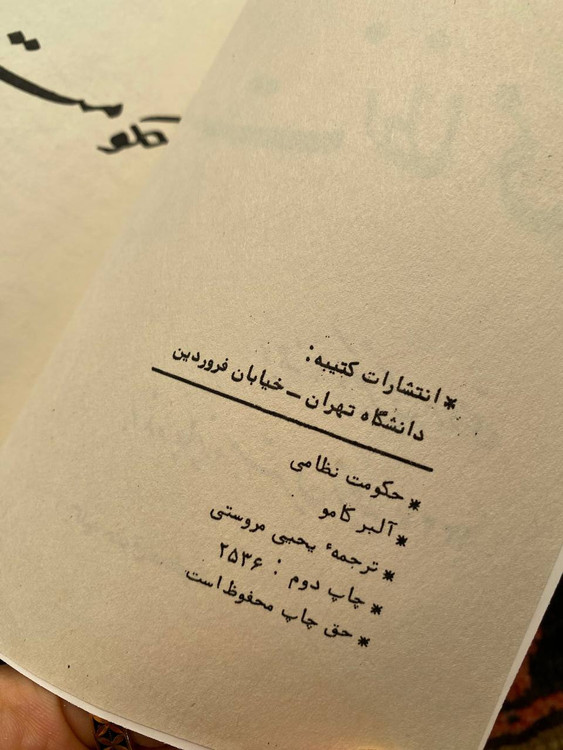 حکومت
* انتشارات کتیبه:
دانشگاه تهران – خیابان فروردین
* حکومت نظامی
* آلبر کامو
* ترجمهٔ یحیی مروستی
* چاپ دوم : ۲۵۳۶
* حق چاپ محفوظ است